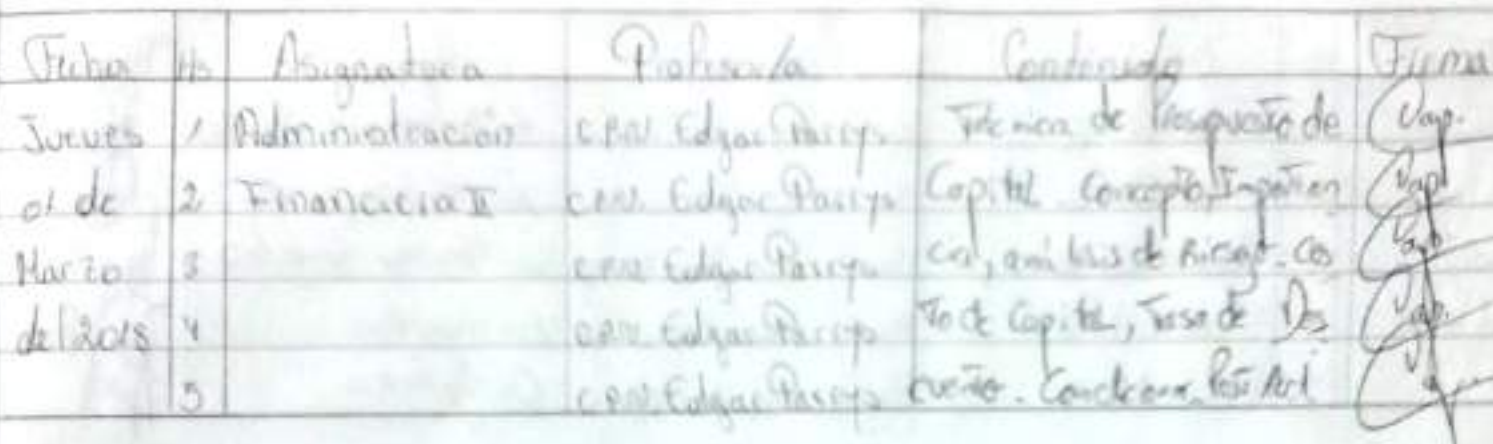 Fecha Hs Asignatura Profesor/a Contenido Firma
Jueves 1 Administración C.P.N. Edgar Parrys Técnica de Presupuesto de
01 de 2 Financiera II C.P.N. Edgar Parrys Capital. Concepto,
Marzo 3 C.P.N. Edgar Parrys cial, análisis de Riesgo. Cos
del 2018 4 C.P.N. Edgar Parrys to de Capital, Tasa de Des
5 C.P.N. Edgar Parrys cuento.